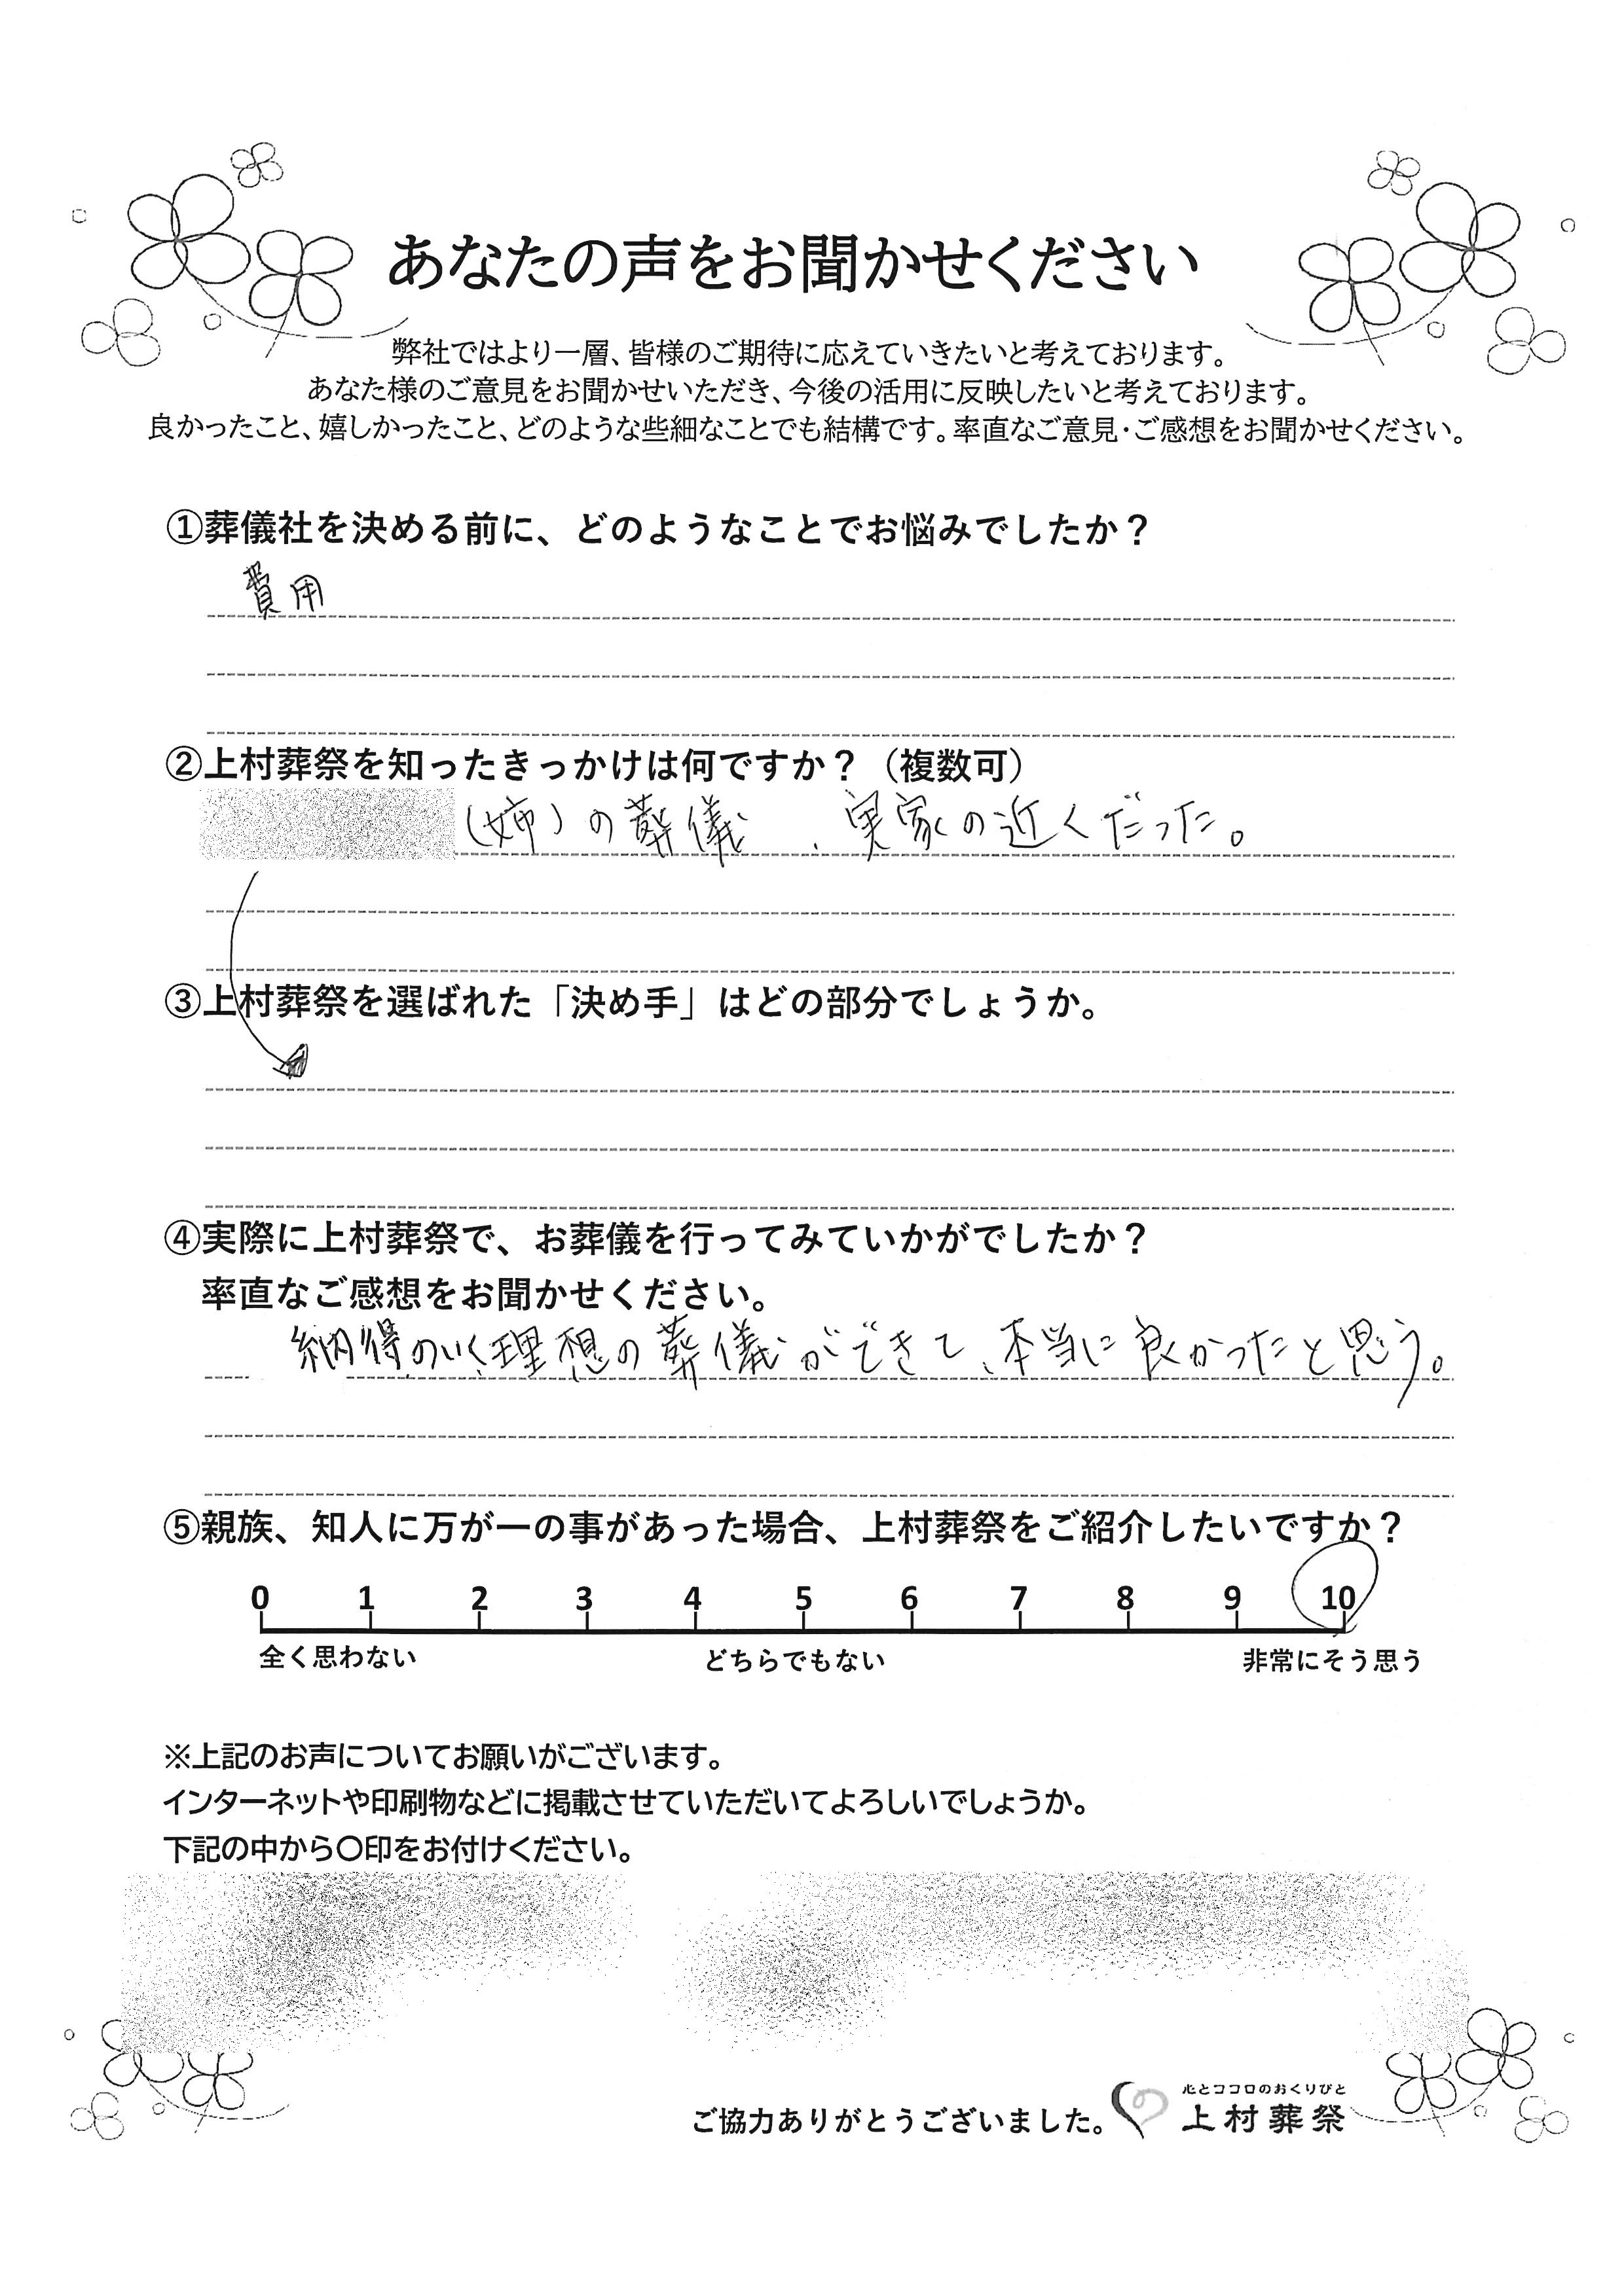 あなたの声をお聞かせください
弊社ではより一層、皆様のご期待に応えていきたいと考えております。
あなた様のご意見をお聞かせいただき、今後の活用に反映したいと考えております。
良かったこと、嬉しかったこと、どのような些細なことでも結構です。率直なご意見・ご感想をお聞かせください。
①葬儀社を決める前に、どのようなことでお悩みでしたか？
費用
②上村葬祭を知ったきっかけは何ですか？（複数可）
（姉）の葬儀、実家の近くだった。
③上村葬祭を選ばれた「決め手」はどの部分でしょうか。
④実際に上村葬祭で、お葬儀を行ってみていかがでしたか？
率直なご感想をお聞かせください。
納得のいく理想の葬儀ができて、本当に良かったと思う。
⑤親族、知人に万が一の事があった場合、上村葬祭をご紹介したいですか？
0 1 2 3 4 5 6 7 8 9 10
全く思わない どちらでもない 非常にそう思う
※上記のお声についてお願いがございます。
インターネットや印刷物などに掲載させていただいてよろしいでしょうか。
下記の中から〇印をお付けください。
心とココロのおくりびと
ご協力ありがとうございました。 上村葬祭